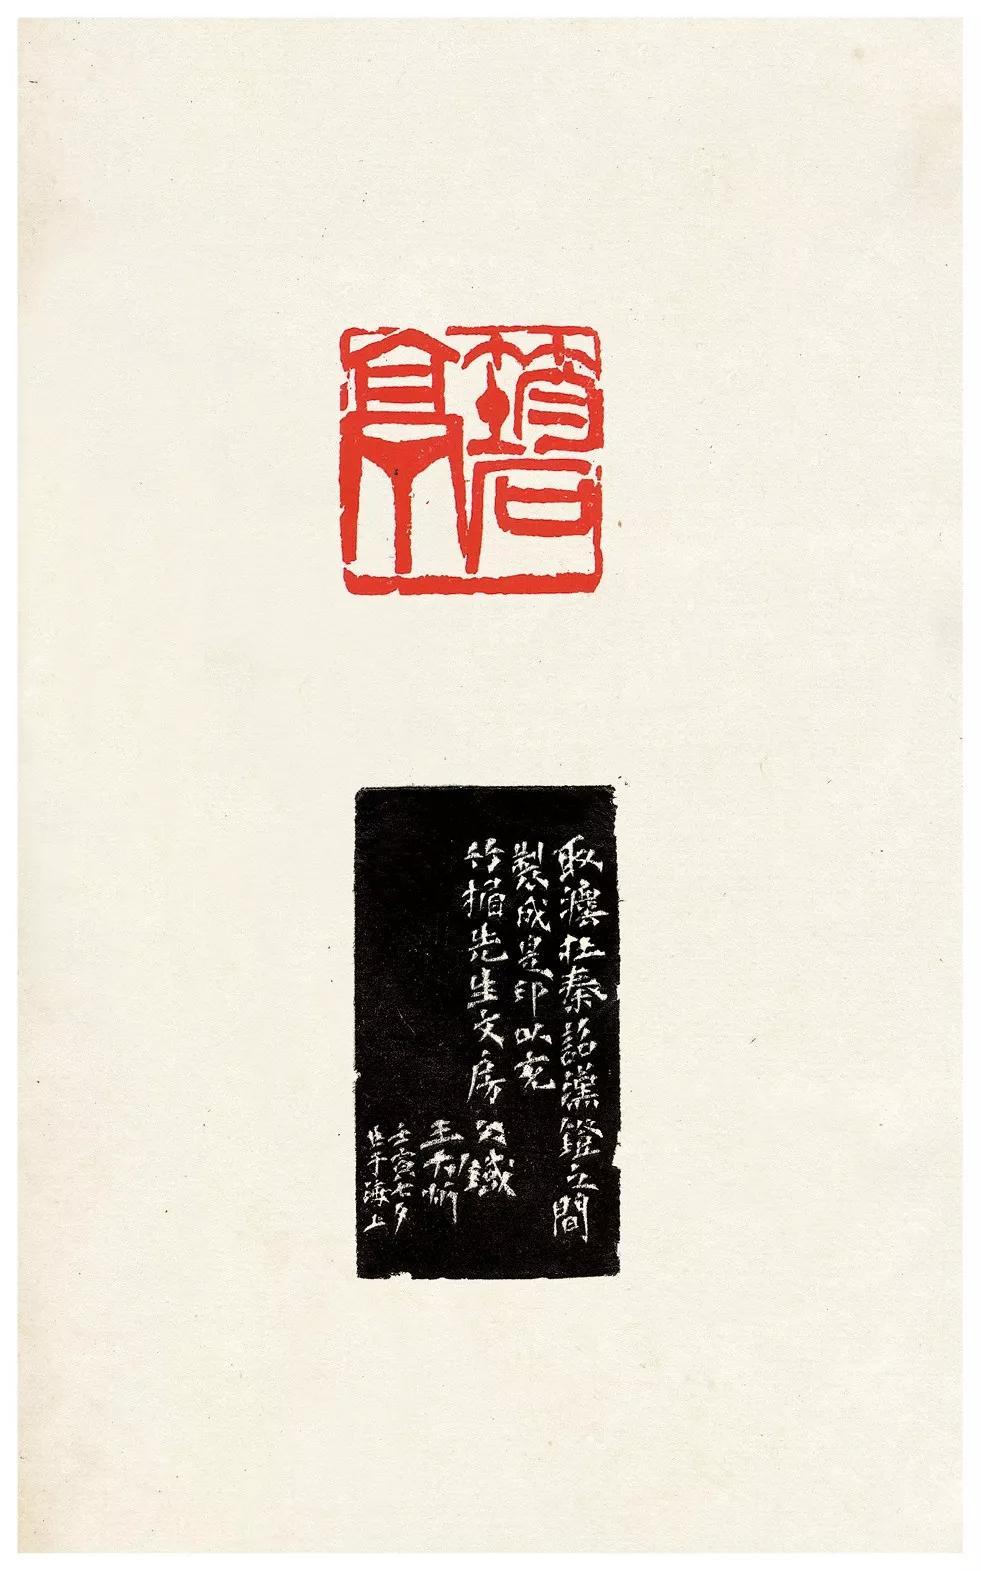 亭
取灋在秦詔漢鐙之間
製成是印以充
竹楣先生文房 仌鐵
王大炘
壬寅七夕
作于海上